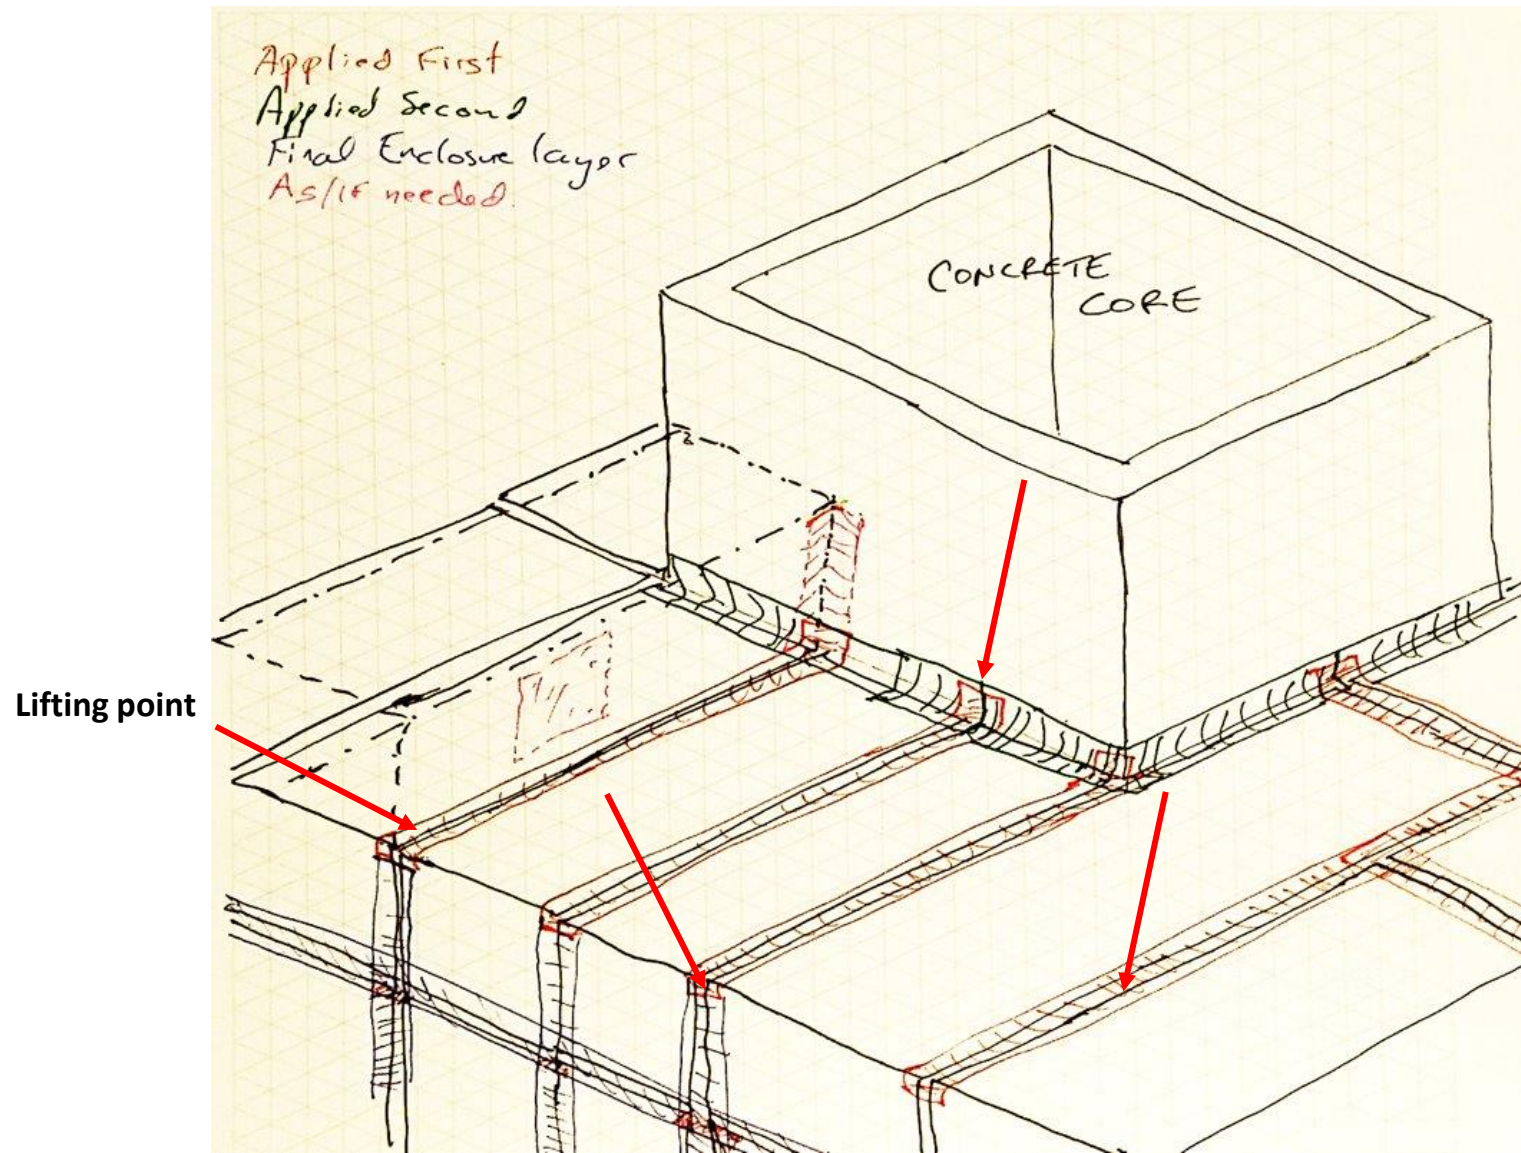 Applied First
Applied Second
Final Enclosure layer
As/if needed.
CONCRETE
CORE
Lifting point